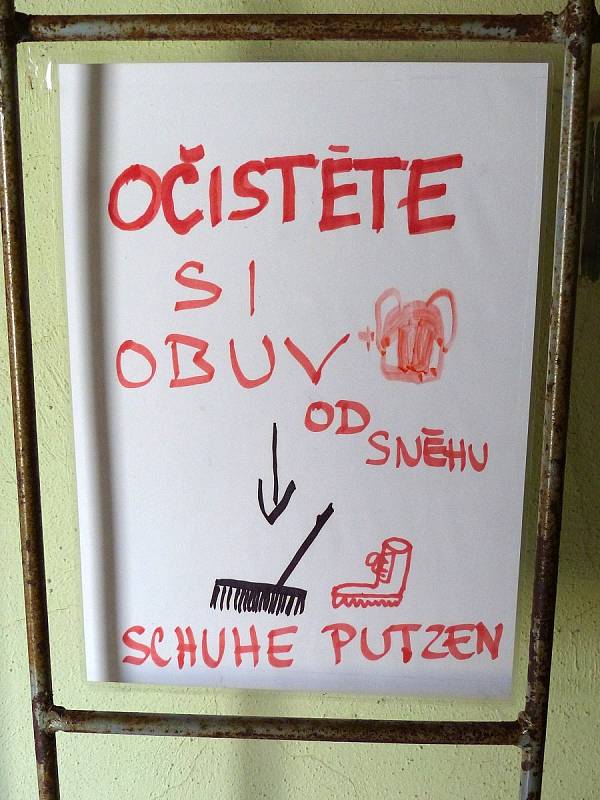 OČISTĚTE
SI
OBUV +
OD
SNĚHU
SCHUHE PUTZEN